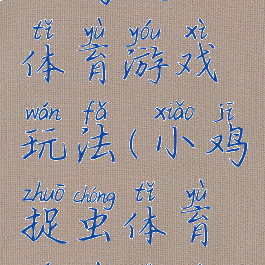 tǐ yù yóu xì
体育游戏
wán fǎ xiǎo jī
玩法(小鸡
zhuō chóng tǐ yù
捉虫体育